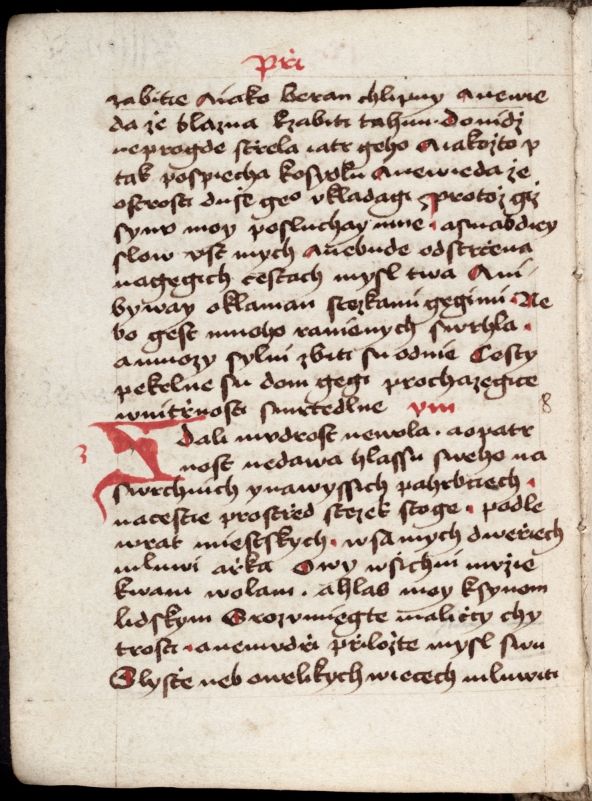 Pri
zabitie Aiako beran chlipny Anewie
da ze blazna kzabiti tahnu. Donidz
neprogde strela iatr geho Aiakozto p
tak pospiecha kosydlu Anewieda ze
ofrosti duse geo vkladagi Protoz giz
synu moy posluchay mne. asnabdiey
slow vst mych Anebude odstrcena
nagegich cestach mysl twa Ani
byway oklaman stezkami gegimi. Ne
bo gest mnoho ranienych swrhla.
amnozy sylni zbiti su odnie Cesty
pekelne su dom gegi prochazegice
wnitrnosti smrtedlne viii
8
3
Zdali mudrost newola. aopatr
nost nedawa hlassu sweho na
swrchnich ynawyssich pahrbciech.
naceste prostred stezek stoge. podle
wrat miestskych. wsamych dwerech
mluwi arka Owy wsichni muzie
kwam wolam. ahlas moy ksynom
lidskym Srozumiegte maliccy chy
trosti. anemudri prilozte mysl swu
Slyste neb owelikych wiecech mluwiti